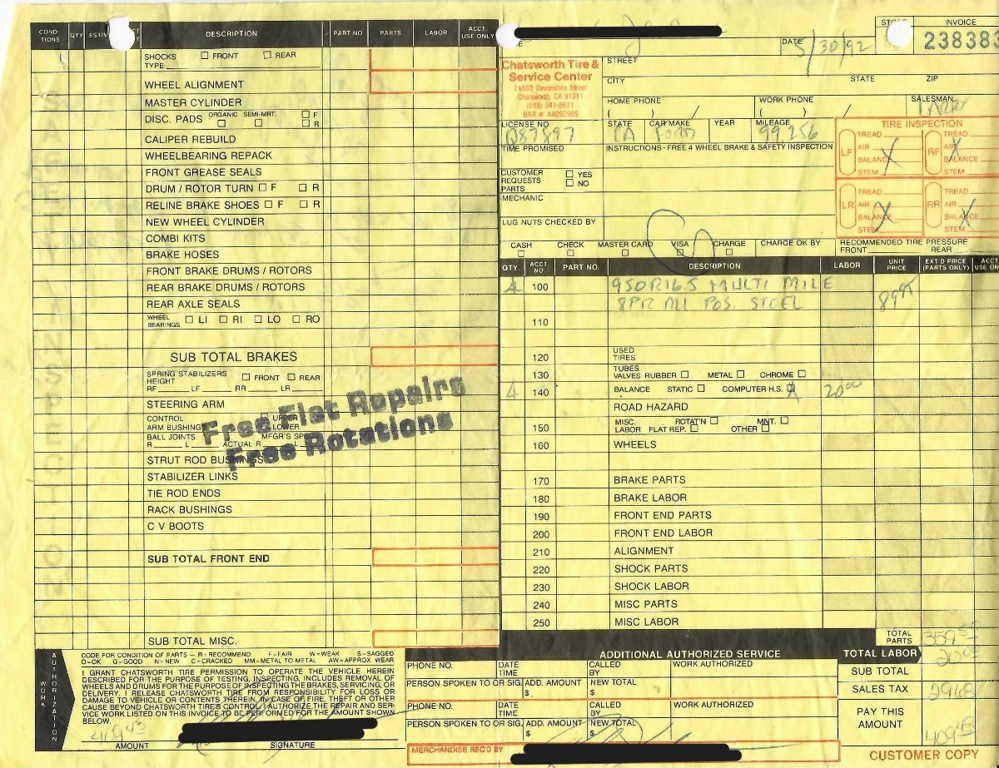 CONDI-TIONS QTY ESTIM ACCT DESCRIPTION PART NO PARTS LABOR ACCT. USE ONLY
SHOCKS □ FRONT □ REAR
TYPE
WHEEL ALIGNMENT
MASTER CYLINDER
DISC. PADS ORGANIC □ SEMI-MRT. □ □ F □ R
CALIPER REBUILD
WHEELBEARING REPACK
FRONT GREASE SEALS
DRUM / ROTOR TURN □ F □ R
RELINE BRAKE SHOES □ F □ R
NEW WHEEL CYLINDER
COMBI KITS
BRAKE HOSES
FRONT BRAKE DRUMS / ROTORS
REAR BRAKE DRUMS / ROTORS
REAR AXLE SEALS
WHEEL BEARINGS □ LI □ RI □ LO □ RO
SUB TOTAL BRAKES
SPRING STABILIZERS □ FRONT □ REAR
HEIGHT
RF LF RR LR
STEERING ARM
CONTROL UPPER
ARM BUSHING LOWER
BALL JOINTS MFGR'S
R L ACTUAL R L
STRUT ROD BUSHINGS
STABILIZER LINKS
TIE ROD ENDS
RACK BUSHINGS
C V BOOTS
SUB TOTAL FRONT END
SUB TOTAL MISC.
Free Flat Repairs
Free Rotations
CODE FOR CONDITION OF PARTS - R - RECOMMEND F - FAIR W = WEAK S = SAGGED
O=OK G=GOOD N - NEW C=CRACKED MM=METAL TO METAL AW=APPROX WEAR
AUTHORIZATION WORK
I GRANT CHATSWORTH TIRE PERMISSION TO OPERATE THE VEHICLE HEREIN
DESCRIBED FOR THE PURPOSE OF TESTING, INSPECTING, INCLUDES REMOVAL OF
WHEELS AND DRUMS FOR THE PURPOSE OF INSPECTING THE BRAKES, SERVICING, OR
DELIVERY. I RELEASE CHATSWORTH TIRE FROM RESPONSIBILITY FOR LOSS OR
DAMAGE TO VEHICLE OR CONTENTS THEREIN, IN CASE OF FIRE, THEFT OR OTHER
CAUSE BEYOND CHATSWORTH TIRE'S CONTROL. I AUTHORIZE THE REPAIR AND SER-
VICE WORK LISTED ON THIS INVOICE TO BE PERFORMED FOR THE AMOUNT SHOWN
BELOW.
AMOUNT SIGNATURE
STORE INVOICE
DATE 5/30/92 238383
Chatsworth Tire &
Service Center
Chatsworth, CA 91311
STREET
CITY STATE ZIP
HOME PHONE WORK PHONE SALESMAN
( ) / ( ) /
LICENSE NO STATE CAR MAKE YEAR MILEAGE
CA Ford 99256
TIME PROMISED INSTRUCTIONS - FREE 4 WHEEL BRAKE & SAFETY INSPECTION
CUSTOMER REQUESTS PARTS □ YES □ NO
MECHANIC
LUG NUTS CHECKED BY
TIRE INSPECTION
LF TREAD AIR BALANCE STEM
RF TREAD AIR BALANCE STEM
LR TREAD AIR BALANCE STEM
RR TREAD AIR BALANCE STEM
CASH CHECK MASTER CARD VISA CHARGE CHARGE OK BY:
RECOMMENDED TIRE PRESSURE
FRONT REAR
QTY. ACCT NO PART NO. DESCRIPTION LABOR UNIT PRICE EXT D PRICE (PARTS ONLY) ACCT USE ON
4 100 950R165 MULTI MILE
8PR ALL POS. STEEL
110
120 USED TIRES
130 TUBES VALVES RUBBER □ METAL □ CHROME □
4 140 BALANCE STATIC □ COMPUTER H.S. □ 20 00
ROAD HAZARD
150 MISC. LABOR ROTAT'N □ MNT. □ FLAT REP. □ OTHER □
160 WHEELS
170 BRAKE PARTS
180 BRAKE LABOR
190 FRONT END PARTS
200 FRONT END LABOR
210 ALIGNMENT
220 SHOCK PARTS
230 SHOCK LABOR
240 MISC PARTS
250 MISC LABOR
TOTAL PARTS
ADDITIONAL AUTHORIZED SERVICE
TOTAL LABOR
SUB TOTAL
SALES TAX
PAY THIS AMOUNT
PHONE NO. DATE TIME CALLED BY WORK AUTHORIZED
PERSON SPOKEN TO OR SIG. ADD. AMOUNT $ NEW TOTAL $
PHONE NO. DATE TIME CALLED BY WORK AUTHORIZED
PERSON SPOKEN TO OR SIG. ADD. AMOUNT $ NEW TOTAL $
MERCHANDISE REC'D BY
CUSTOMER COPY